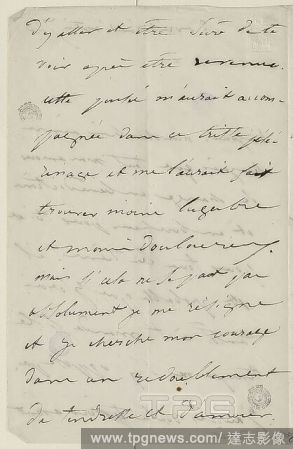 d'y aller et être sûre de te
voir après être revenue.
cette pensée m'aurait accom-
pagnée dans ce triste pélé-
rinage et me l'aurait fait
trouver moins lugubre
et moins douloureux.
mais si cela ne se peut pas
absolument je me résigne
et je cherche mon courage
dans un redoublement
de tendresse et d'amour.
TPG
www.tpgnews.com / 達志影像